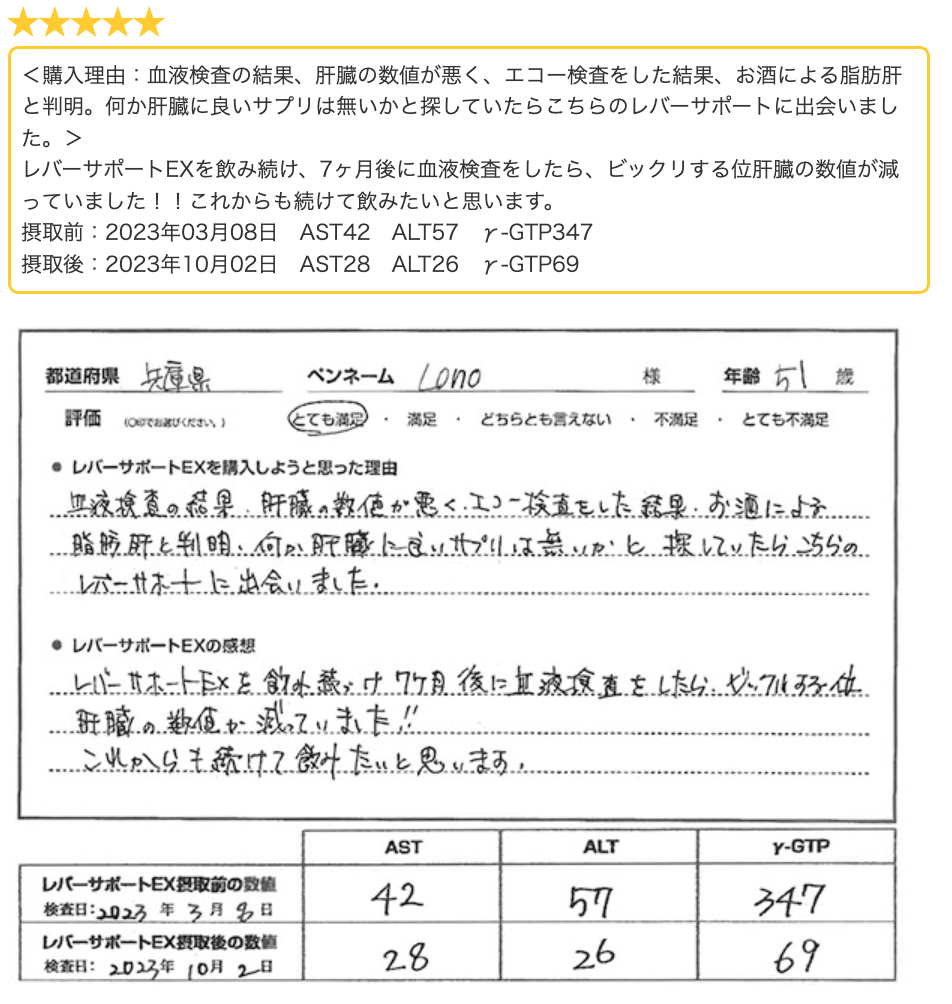 <購入理由：血液検査の結果、肝臓の数値が悪く、エコー検査をした結果、お酒による脂肪肝
と判明。何か肝臓に良いサプリは無いかと探していたらこちらのレバーサポートに出会いまし
た。>
レバーサポートEXを飲み続け、7ヶ月後に血液検査をしたら、ビックリする位肝臓の数値が減
っていました！！これからも続けて飲みたいと思います。
摂取前：2023年03月08日　AST42　ALT57　γ-GTP347
摂取後：2023年10月02日　AST28　ALT26　γ-GTP69
都道府県 兵庫県 ペンネーム Lono 様 年齢 51 歳
評価 (○印でお選びください。) とても満足 ・ 満足 ・ どちらとも言えない ・ 不満足 ・ とても不満足
● レバーサポートEXを購入しようと思った理由
血液検査の結果、肝臓の数値が悪く、エコー検査をした結果、お酒による
脂肪肝と判明、何か肝臓に良いサプリは無いかと探していたらこちらの
レバーサポートに出会いました。
● レバーサポートEXの感想
レバーサポートEXを飲み続け7ヶ月後に血液検査をしたら、ビックリする位
肝臓の数値が減っていました!!
これからも続けて飲みたいと思います。
AST ALT γ-GTP
レバーサポートEX摂取前の数値
検査日:2023年3月8日 42 57 347
レバーサポートEX摂取後の数値
検査日:2023年10月2日 28 26 69